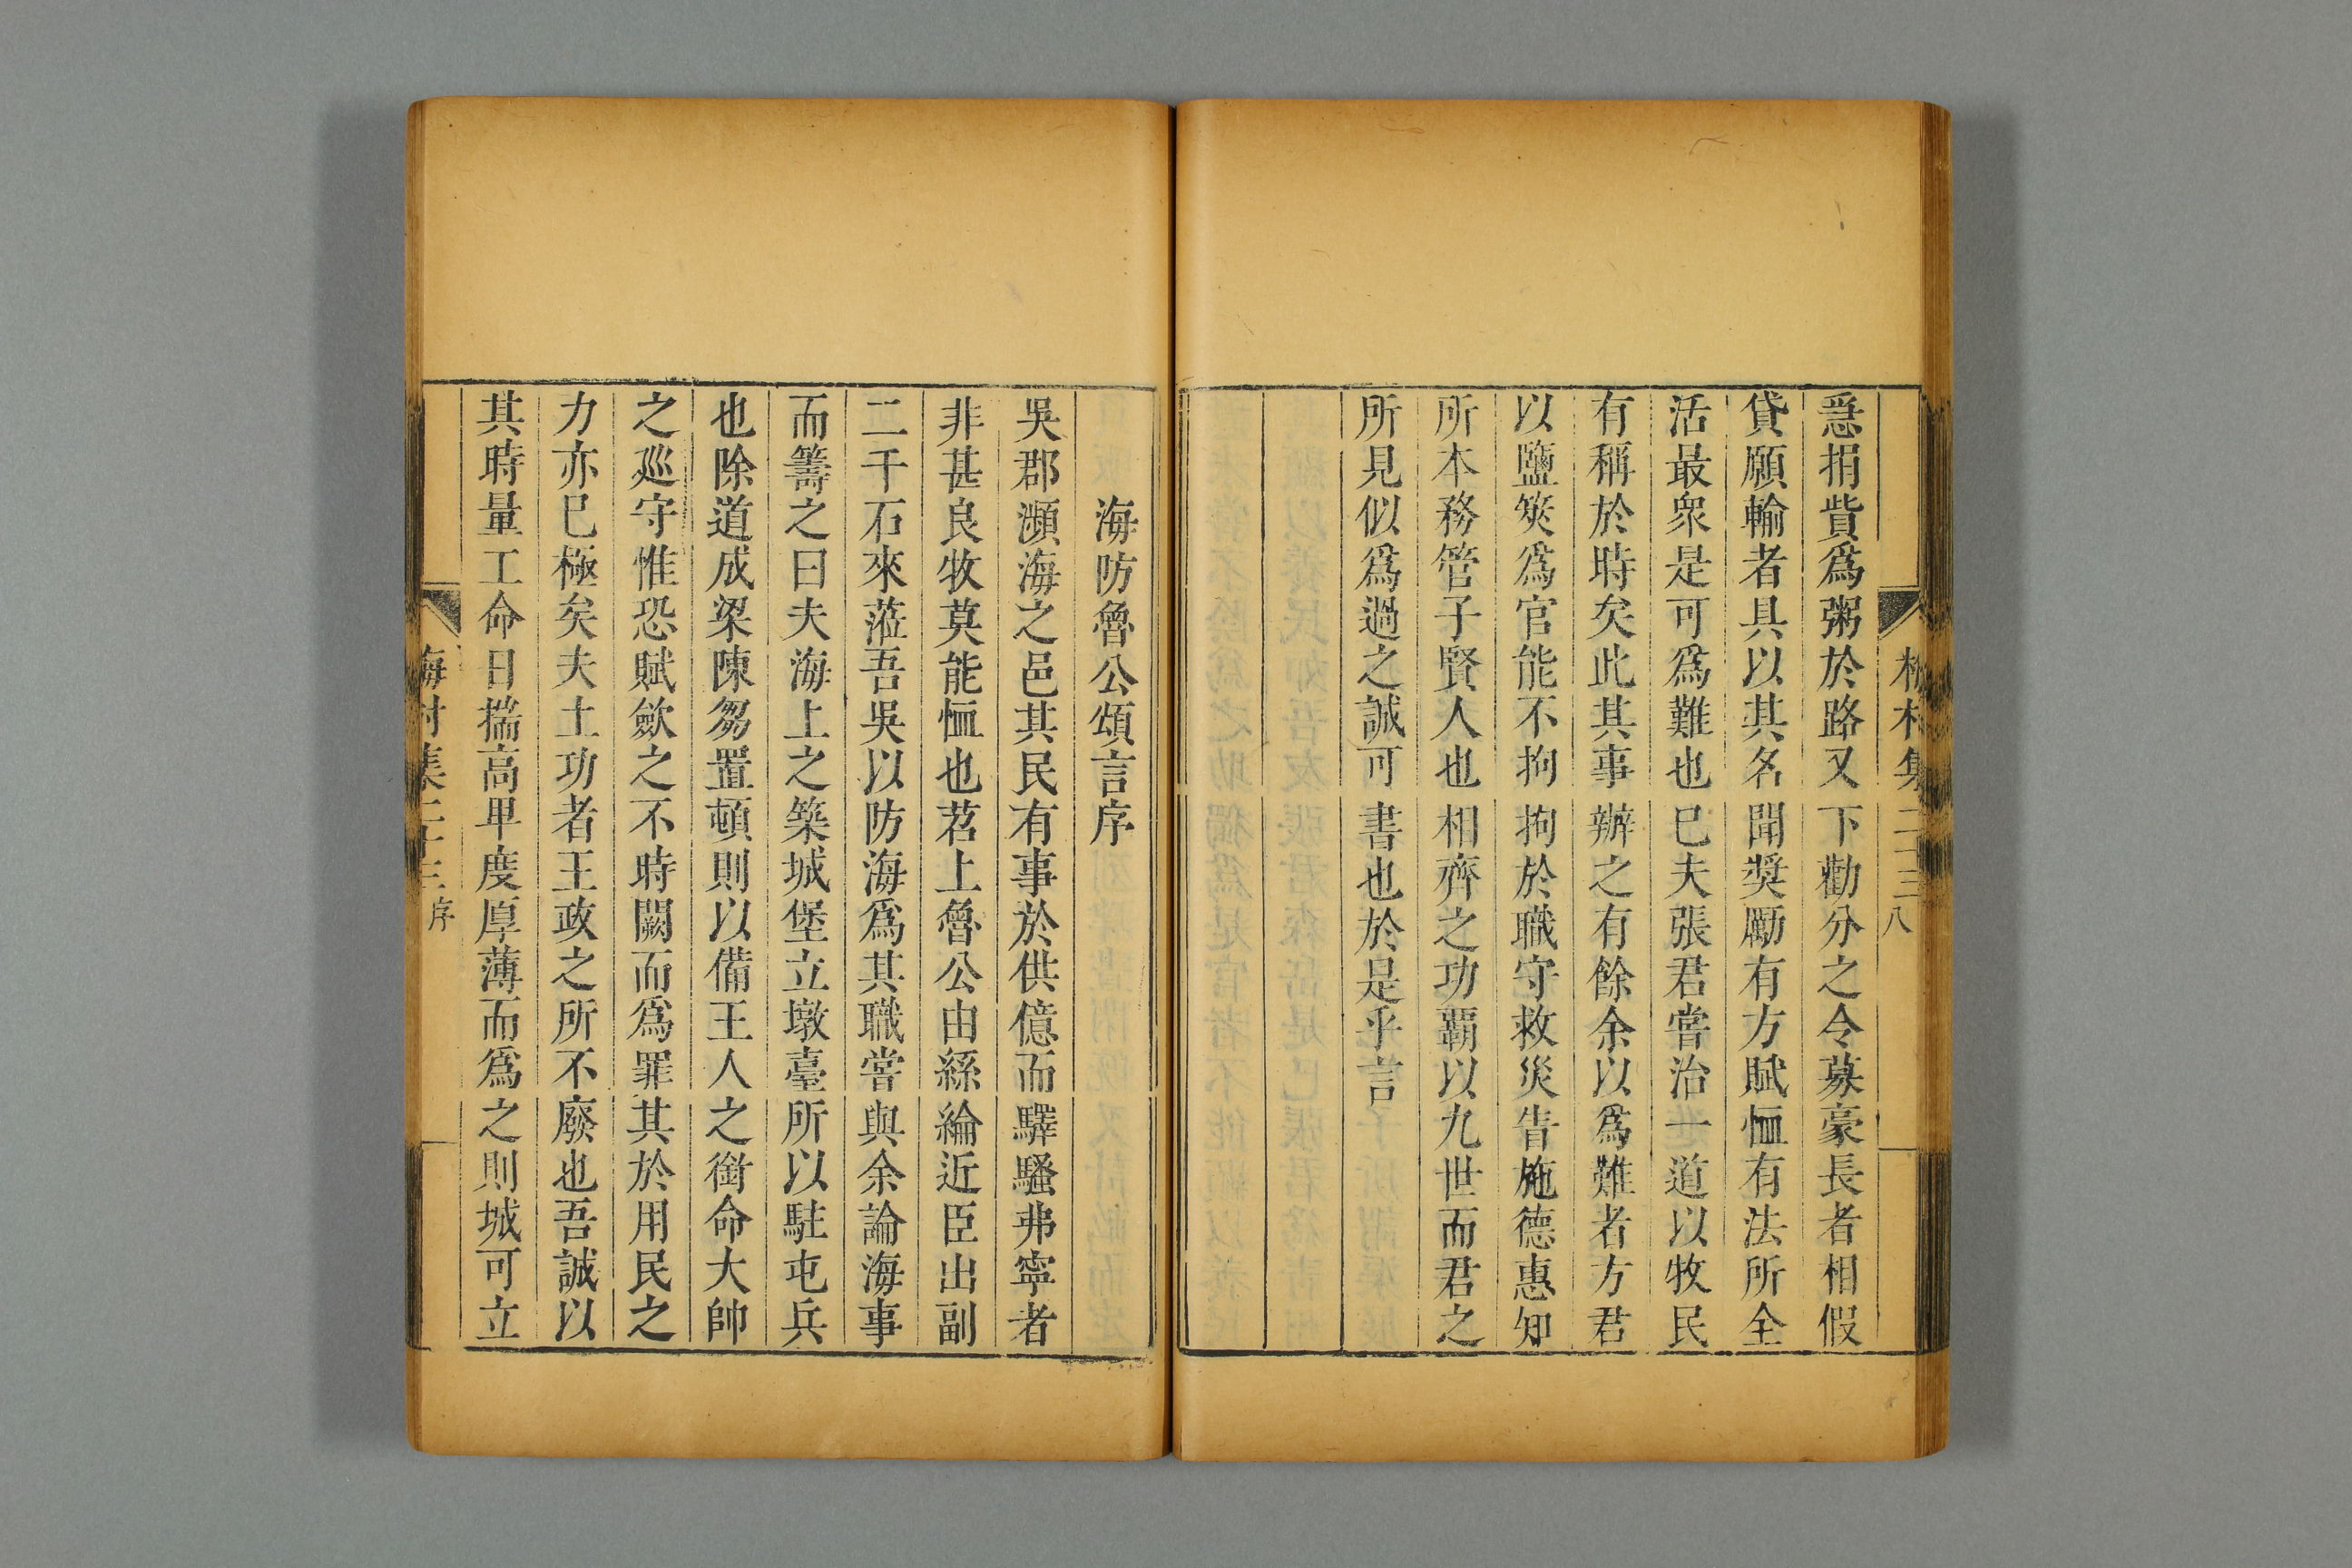 急捐貲爲粥於路又下勸分之令募豪長者相假
貸願輸者具以其名聞奬勵有方賦恤有法所全
活最衆是可爲難也巳夫張君嘗治一道以牧民
有稱於時矣此其事辦之有餘余以爲難者方君
以鹽筴爲官能不拘拘於職守救災眚施德惠知
所本務管子賢人也相齊之功覇以九世而君之
所見似爲過之誠可書也於是乎言
海防魯公頌言序
吳郡瀕海之邑其民有事於供億而驛騷弗寧者
非甚良牧莫能恤也苕上魯公由絲綸近臣出副
二千石來蒞吾吳以防海爲其職嘗與余論海事
而籌之曰夫海上之築城堡立墩臺所以駐屯兵
也除道成梁陳芻置頓則以備王人之銜命大帥
之廵守惟恐賦歛之不時闕而爲罪其於用民之
力亦巳極矣夫土功者王政之所不廢也吾誠以
其時量工命日揣高卑度厚薄而爲之則城可立
村集二十三序